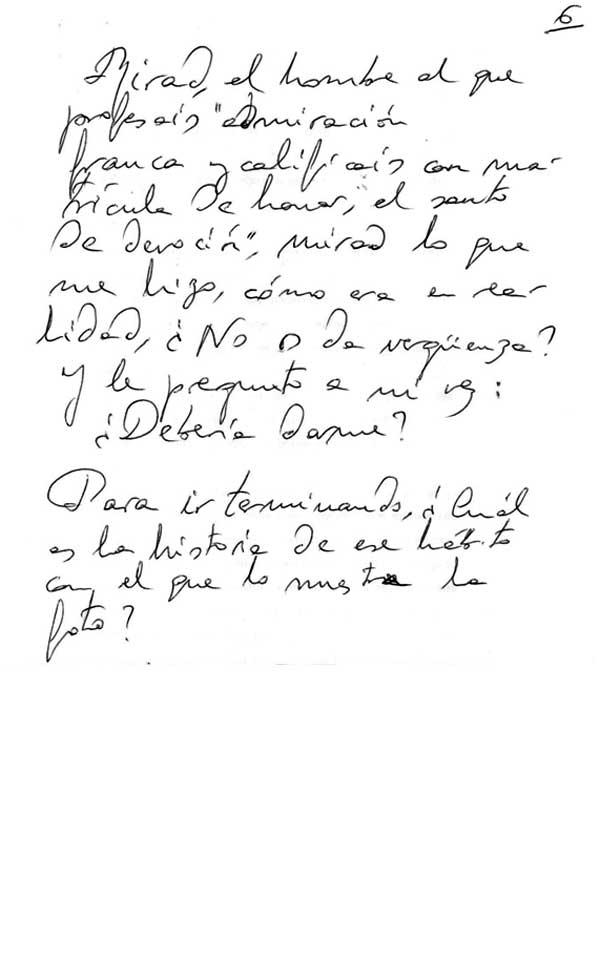 6
Mirad, el hombre al que
profesáis "admiración
franca y calificáis con ma-
trícula de honor, el santo
de devoción", mirad lo que
me hizo, cómo era en rea-
lidad, ¿No os da vergüenza?
y le pregunto a mi vez:
¿Debería darme?
Para ir terminando, ¿Cuál
es la historia de ese hábito
con el que lo muestra la
foto?